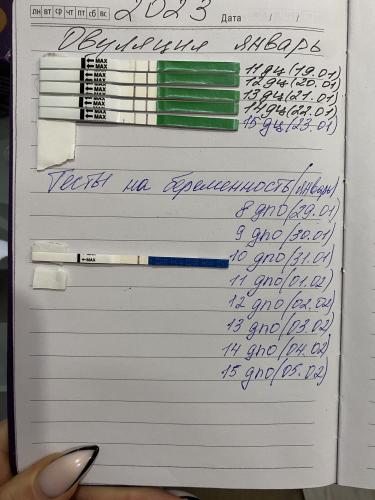 пн вт ср чт пт сб вс 2023 Дата / /
Овуляция январь
MAX 11 дц (19.01)
MAX 12 дц (20.01)
MAX 13 дц (21.01)
MAX 14 дц (22.01)
MAX 15 дц (23.01)
Тесты на беременность (январь)
8 дпо (29.01)
9 дпо (30.01)
MAX 10 дпо (31.01)
11 дпо (01.02)
12 дпо (02.02)
13 дпо (03.02)
14 дпо (04.02)
15 дпо (05.02)